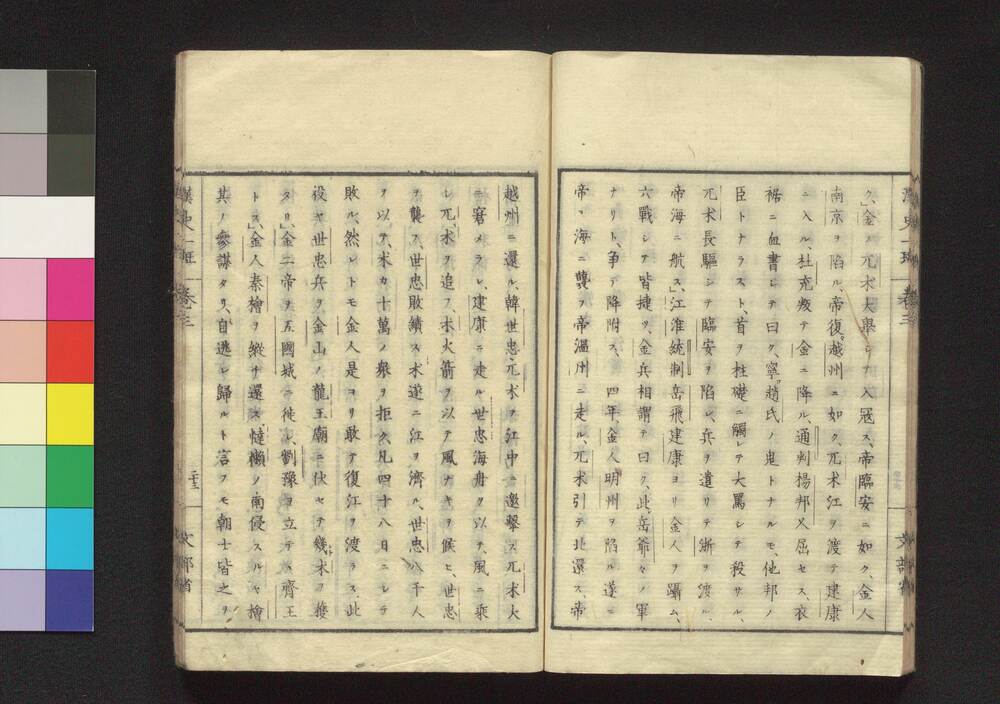 ク、」金ノ兀朮大擧シテ入冠ス、帝臨安ニ如ク、金人
南京ヲ陷ル、帝復越州ニ如ク、兀朮江ヲ渡テ建康
ニ入ル、杜充叛テ金ニ降ル、通判楊邦乂屈セス、衣
裾ニ血書シテ曰ク、寧趙氏ノ鬼トナルモ、他邦ノ
臣トナラスト、首ヲ柱礎ニ觸レテ大罵シテ殺サル、
兀朮長驅シテ臨安ヲ陷レ、兵ヲ遣リテ浙ヲ渡ル、
帝海ニ航ス、」江淮統制岳飛建康ヨリ金人ヲ躡ム、
六戰シテ皆捷ツ、金兵相謂テ曰ク、此岳爺々ノ軍
ナリト、爭テ降附ス、四年、金人明州ヲ陷ル遂ニ
帝ヲ海ニ襲フ帝溫州ニ走ル、兀朮引テ北還ス、帝
越州ニ還ル、韓世忠兀朮ヲ江中ニ邀擊ス兀朮大
ニ窘メラレ、建康ニ走ル世忠海舟ヲ以テ、風ニ乘
シ兀朮ヲ追フ、朮火箭ヲ以テ風ナキヲ候ヒ、世忠
ヲ襲フ、世忠敗績ス朮遂ニ江ヲ濟ル、世忠八千人
ヲ以テ、朮カ十萬ノ衆ヲ拒ク凡四十八日ニシテ
敗ル、然レトモ金人是ヨリ敢テ復江ヲ渡ラス、此
役ヤ世忠兵ヲ金山ノ龍王廟ニ伏セテ幾朮ヲ獲
タリ、」金二帝ヲ五國城ニ徙シ、劉豫ヲ立テヽ齊王
トス、」金人秦檜ヲ縱チ還ス撻懶ノ南侵スルヤ檜
其ノ參謀タリ、自逃レ歸ルト言フモ朝士皆之ヲ
漢史一班 卷三
二十三
文部省